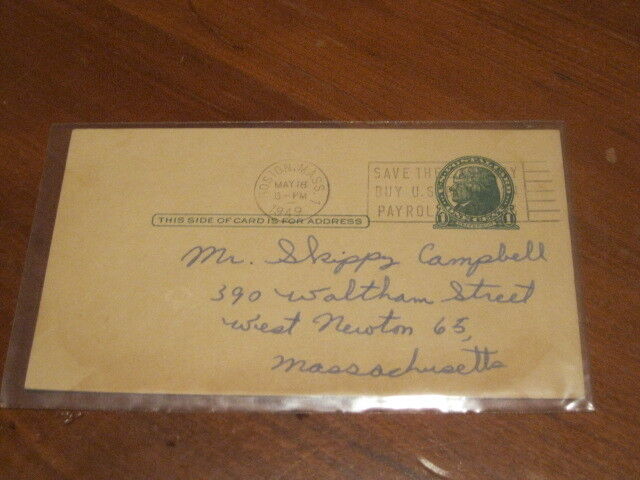 BOSTON, MASS. 1
MAY 18
1949
SAVE THE
BUY U.S.
PAYROL
U.S. POSTAGE
1 1
THIS SIDE OF CARD IS FOR ADDRESS
Mr. Skippy Campbell
390 Waltham Street
West Newton 65,
Massachusetts